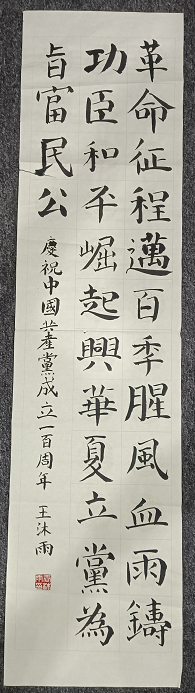 革命征程邁百年腥風血雨鑄
功臣和平崛起興華夏立黨為
旨富民公
慶祝中國共產黨成立一百周年 王沐雨